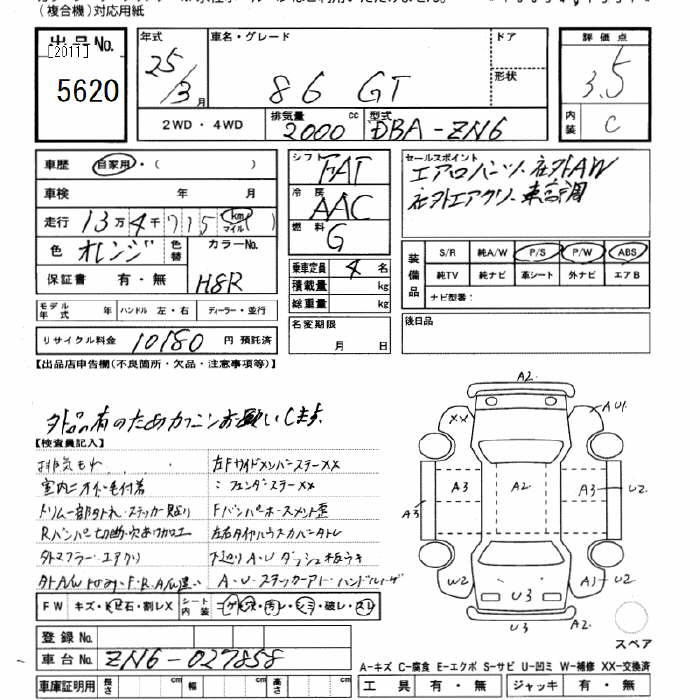 (複合機)対応用紙
出品No.
[2011]
5620
年式 車名・グレード ドア 評価点
25/3月 86 GT 形状 3.5
2WD・4WD 排気量 2000 cc 型式 DBA-ZN6 内装 C
車歴 自家用・( )
シフト FAT
セールスポイント
エアロパーツ、社外AW
社外エアクリ、車高調
車検 年 月
冷房 AAC
走行 13万4千715 km マイル ( )
燃料 G
色 オレンジ 色替 カラーNo. H8R
保証書 有・無
乗車定員 4名
積載量 kg
総重量 kg
装備品 S/R 純A/W P/S P/W ABS
純TV 純ナビ 革シート 外ナビ エアB
ナビ型番:
モデル年式 年 ハンドル 左・右 ディーラー・並行
リサイクル料金 10180 円 預託済
名変期限 月 日
後日品
【出品店申告欄(不良箇所・欠品・注意事項等)】
【検査員記入】
排気もれ 左FサイドメンバーステーXX
室内ニオイ・毛付着 : フェンダーステーXX
Fバンパーホースメント歪
Rバンパ切断・穴あけ加工 左右タイヤハウスカバータトレ
外マフラー・エアクリ 下廻りA・U ダッシュ板ウキ
FW キズ・ヒ石・割レX シート内装 コゲ・穴・汚レ・シミ・破レ・スレ
登録No.
車台No. ZN6-027858
車庫証明用 長さ cm 幅 cm 高さ cm
A2
XX
A U1
A3
A3
A2
A3
U2
W2
A1
U2
U3
U3 A2
スペア
A-キズ C-腐食 E-エクボ S-サビ U-凹ミ W-補修 XX-交換済
工具 有・無 ジャッキ 有・無